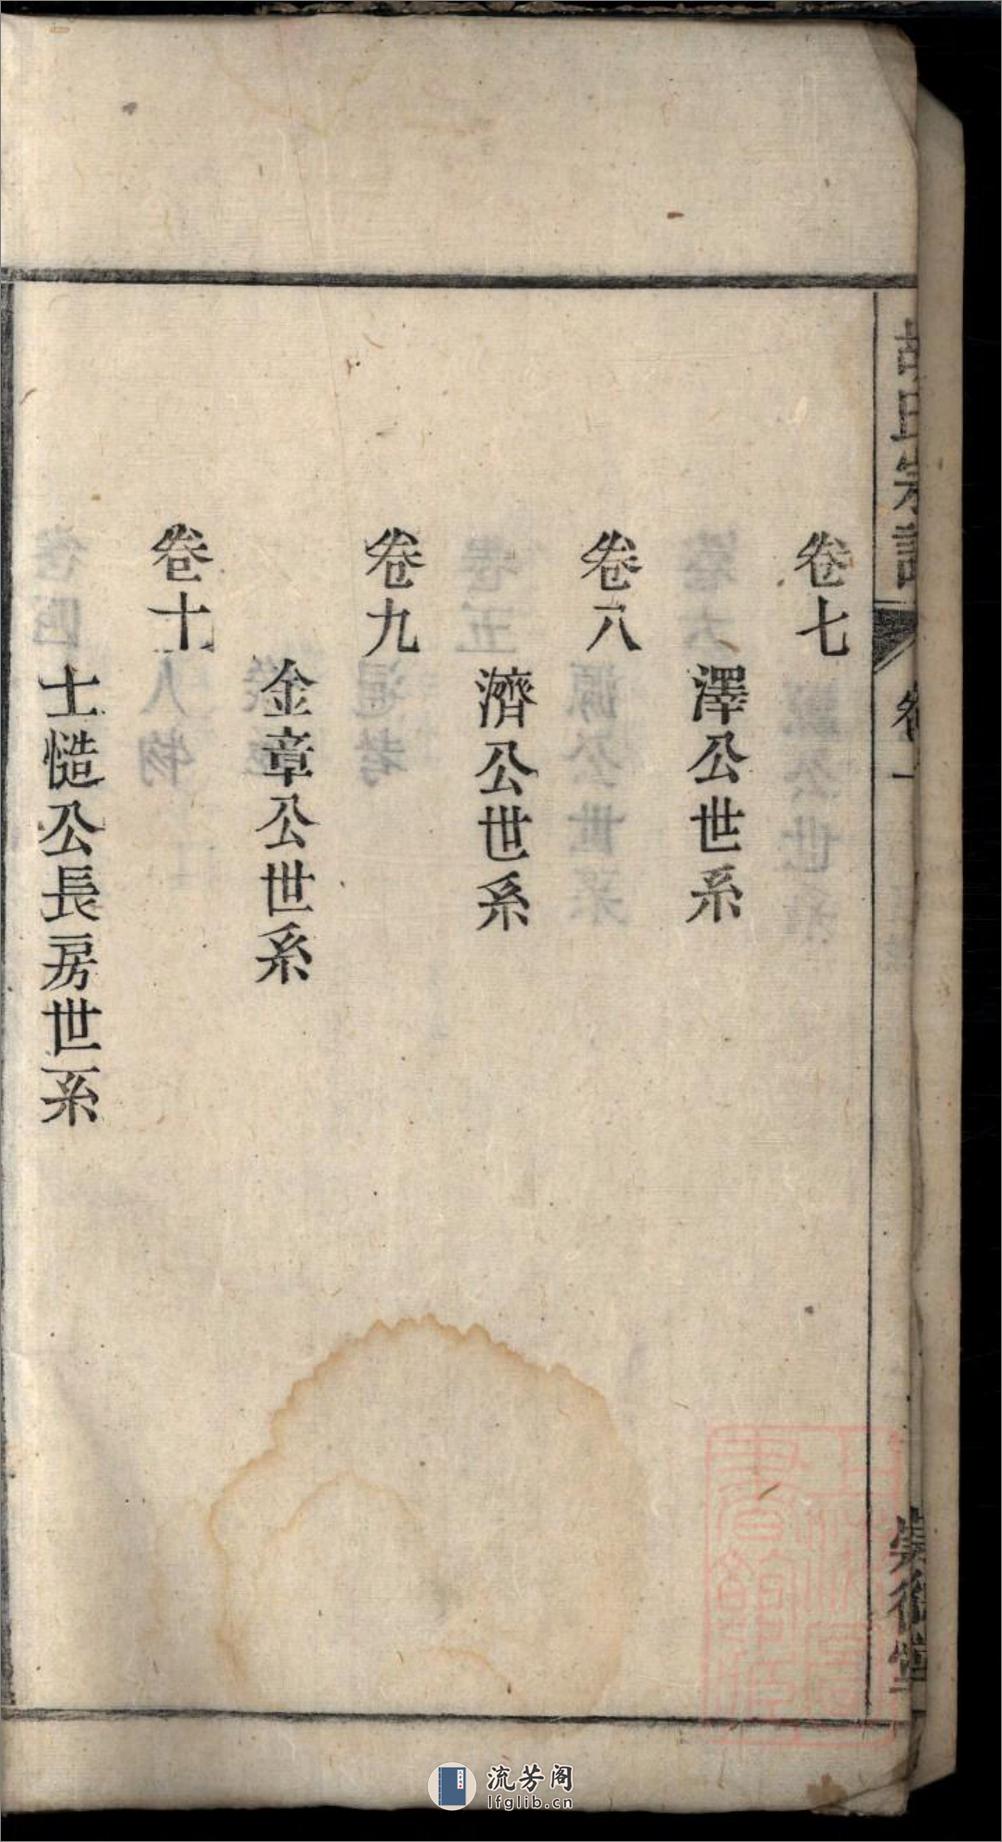 胡氏宗譜
卷一
卷七
澤公世系
卷八
濟公世系
卷九
金章公世系
卷十
士慥公長房世系
流芳阁
lfglib.cn